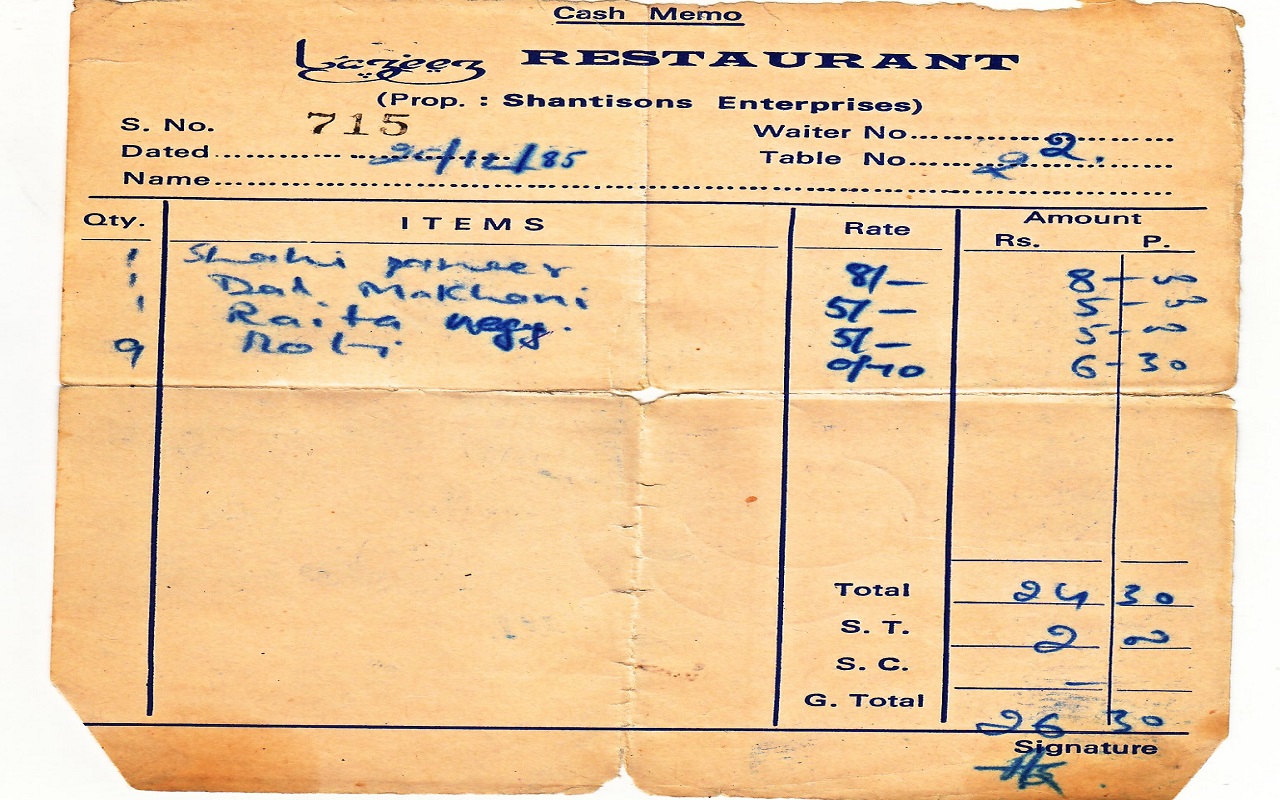 Cash Memo
Lazeez RESTAURANT
(Prop. : Shantisons Enterprises)
S. No. 715 Waiter No. 2.
Dated /12/85 Table No.
Name
Qty. ITEMS Rate Amount
Rs. P.
1 Shahi paneer 8/- 8-00
1 Dal Makhani 5/- 5-00
1 Raita vegg. 5/- 5-00
9 Roti 0/70 6-30
Total 24 30
S. T. 2 00
S. C. -
G. Total 26 30
Signature